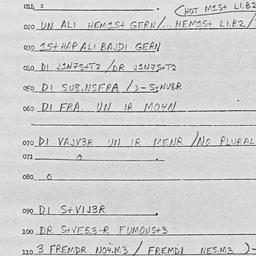 014 0 (HOT M1S+ L1.B2
020 UN ALI HEM1S+ GERN/... HEM1S+ L1.B2/
030 1S+HAP ALI BAJDI GERN
040 DI J1N7S+T2 /DR J1N7S+T2
050 DI SU8.NSFRA /)-S+NU8R
060 DI FRA. UN IR MO4N
070 DI VAJV3R UN IR MENR /NO PLURAL
071 0
080 0
090 DI S+V1J3R
100 DR S+VES.3-R FUMOUS+3
110 3 FREMDR NO4.M3 / FREMDI NES.M3 )-